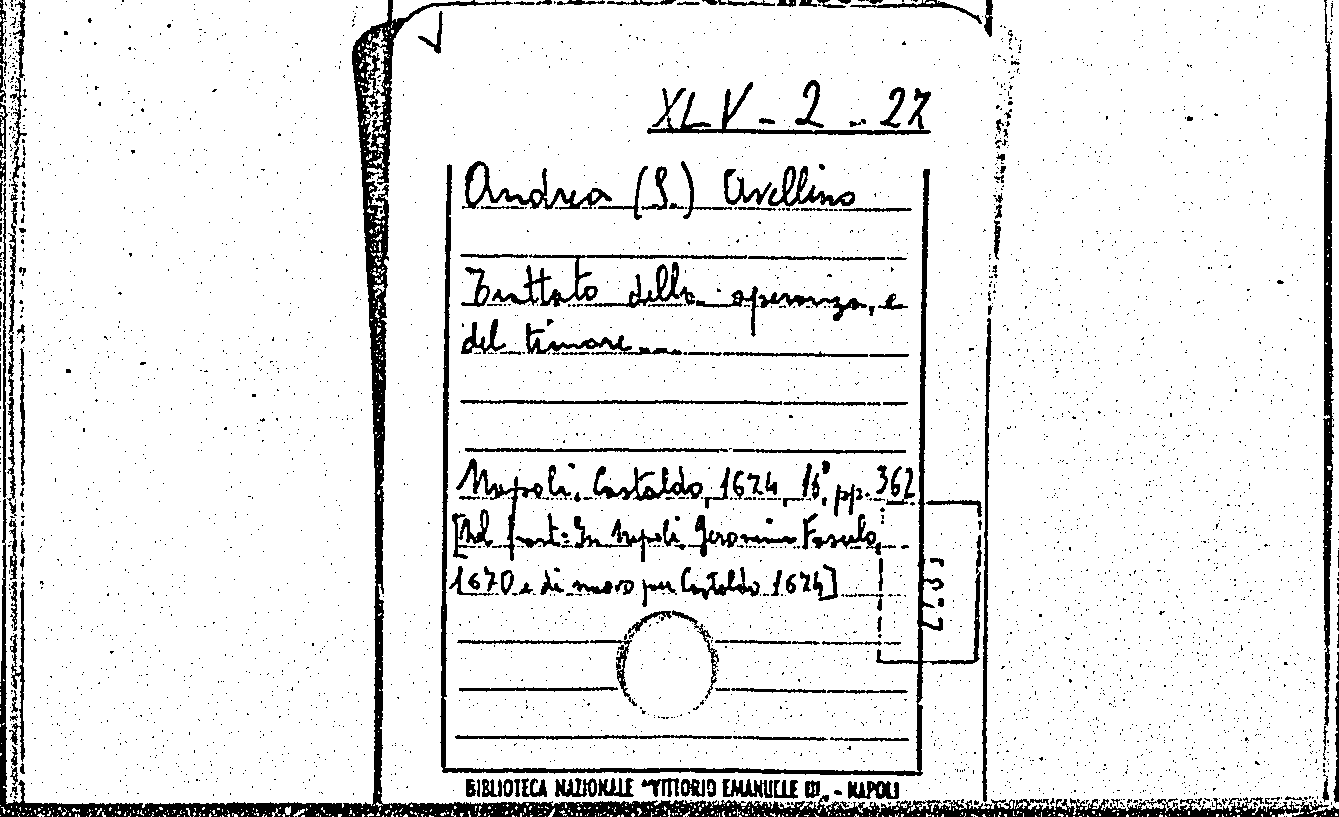 XLV - 2 - 27
Andrea (S.) Avellino
Trattato della speranza, e
del timore...
Napoli, Castaldo, 1674, 16°, pp. 362
[Nel front: In Napoli, Geronimo Fasulo,
1670 e di nuovo per Castaldo 1674]
BIBLIOTECA NAZIONALE "VITTORIO EMANUELE III„ - NAPOLI